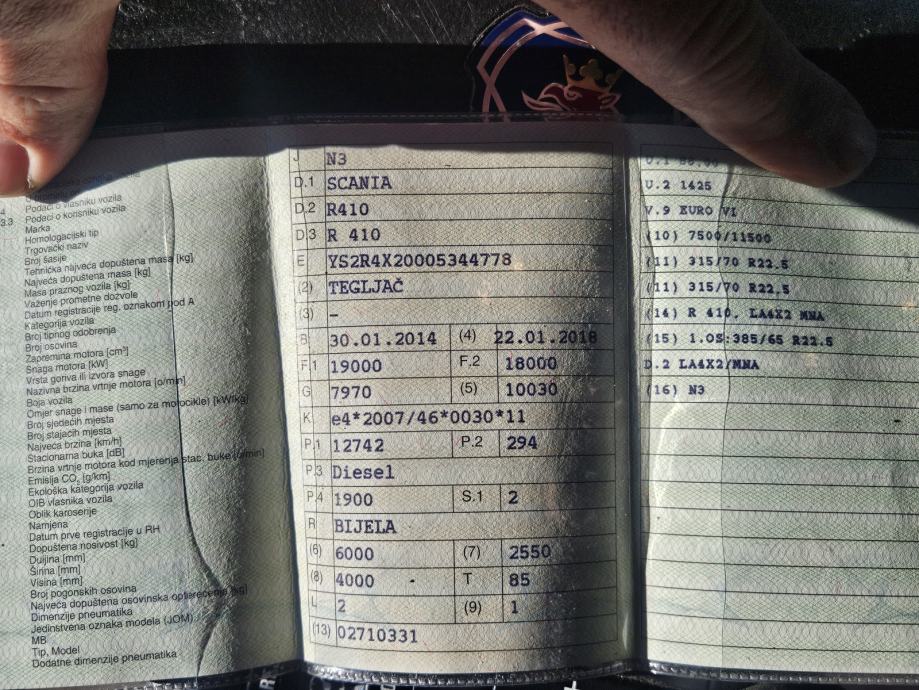 Podaci o vlasniku vozila
Podaci o korisniku vozila
Marka
Homologacijski tip
Trgovački naziv
Broj šasije
Tehnička najveća dopuštena masa [kg]
Najveća dopuštena masa [kg]
Masa praznog vozila [kg]
Važenje prometne dozvole
Datum registracije reg. oznakom pod A
Kategorija vozila
Broj tipnog odobrenja
Broj osovina
Zapremina motora [cm³]
Snaga motora [kW]
Vrsta goriva ili izvora snage
Nazivna brzina vrtnje motora [o/min]
Boja vozila
Omjer snage i mase (samo za motocikle) [kW/kg]
Broj sjedećih mjesta
Broj stajaćih mjesta
Najveća brzina [km/h]
Stacionarna buka [dB]
Brzina vrtnje motora kod mjerenja stac. buke [o/min]
Emisija CO₂ [g/km]
Ekološka kategorija vozila
OIB vlasnika vozila
Oblik karoserije
Namjena
Datum prve registracije u RH
Dopuštena nosivost [kg]
Duljina [mm]
Širina [mm]
Visina [mm]
Broj pogonskih osovina
Najveća dopuštena osovinska opterećenja [kg]
Dimenzije pneumatika
Jedinstvena oznaka modela (JOM)
MB
Tip, Model
Dodatne dimenzije pneumatika
J N3
D.1 SCANIA
D.2 R410
D.3 R 410
E YS2R4X20005344778
(2) TEGLJAČ
(3) –
B 30.01.2014 (4) 22.01.2018
F.1 19000 F.2 18000
G 7970 (5) 10030
K e4*2007/46*0030*11
P.1 12742 P.2 294
P.3 Diesel
P.4 1900 S.1 2
R BIJELA
(6) 6000 (7) 2550
(8) 4000 T 85
L 2 (9) 1
(13) 02710331
U.1
U.2 1425
V.9 EURO VI
(10) 7500/11500
(11) 315/70 R22.5
(11) 315/70 R22.5
(14) R 410, LA4X2 MNA
(15) 1.OS:385/65 R22.5
D.2 LA4X2/MNA
(16) N3